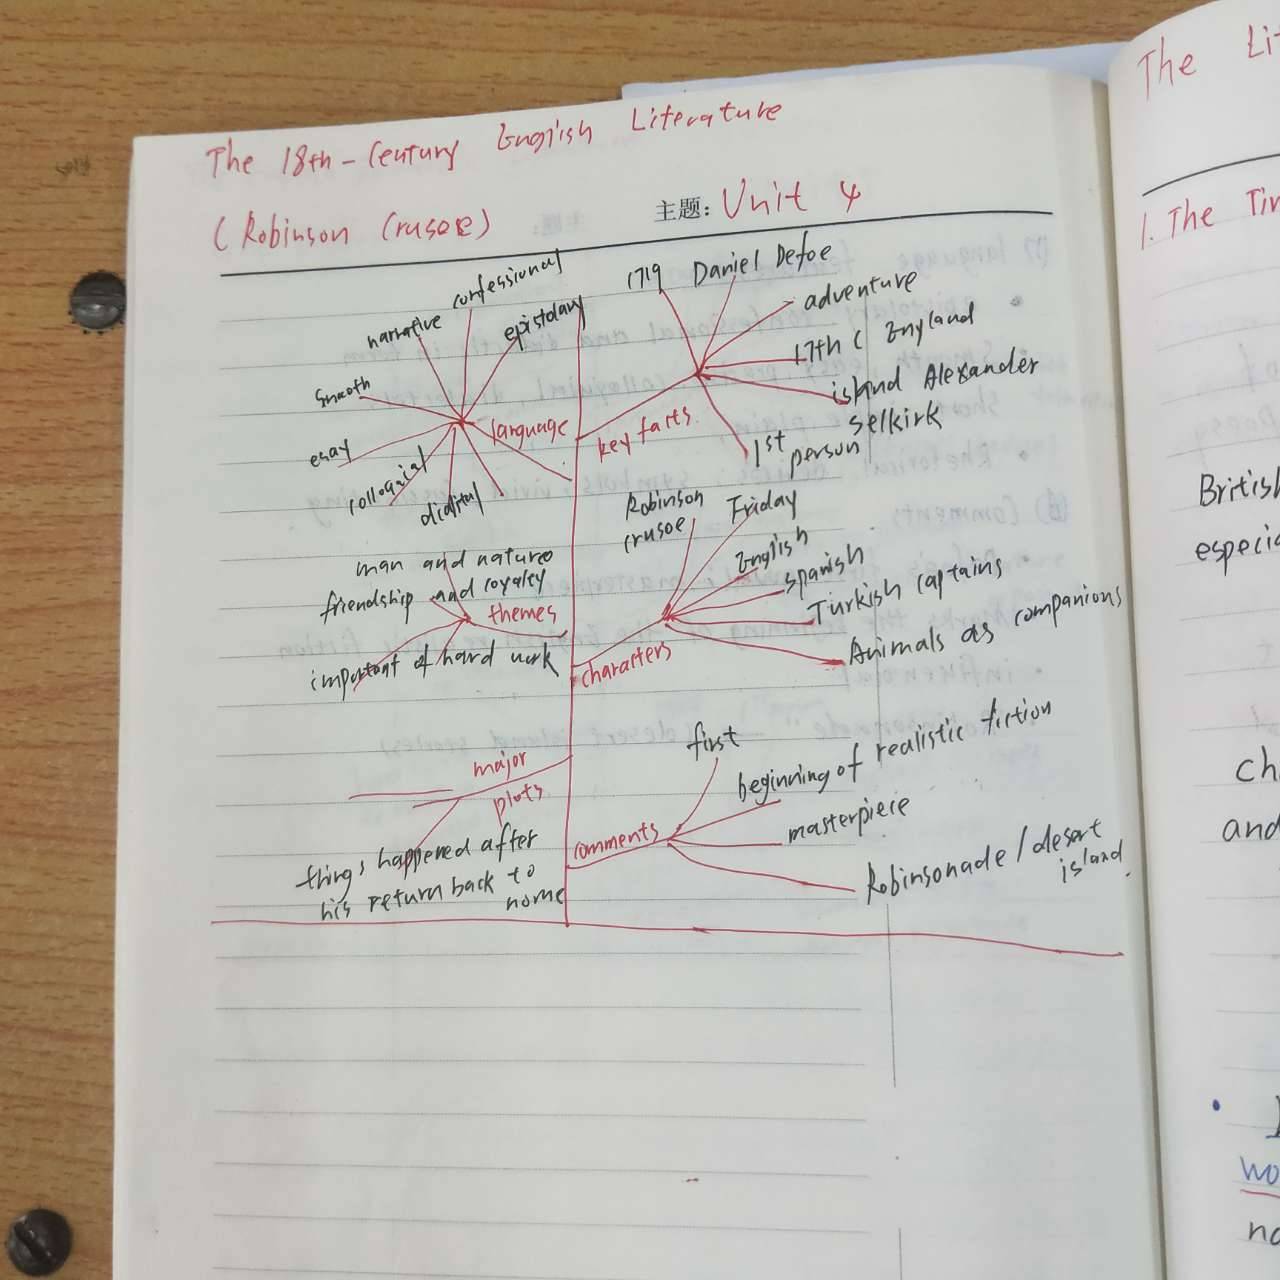 The 18th-Century English Literature
(Robinson Crusoe)
主题: Unit 4
confessional
narrative
epistolary
smooth
language
esay
colloquial
1719
Daniel Defoe
adventure
17th C England
island Alexander
selkirk
key facts
1st
person
man and nature
friendship and loyalty
themes
important of hard work
Robinson
crusoe
Friday
English
spanish
Turkish captains
Animals as companions
characters
major
plots
things happened after
his return back to
home
first
beginning of realistic fiction
masterpiece
Robinsonade / desert
island.
comments
The Li
1. The Tim
British
especia
Ch
and
wo
no